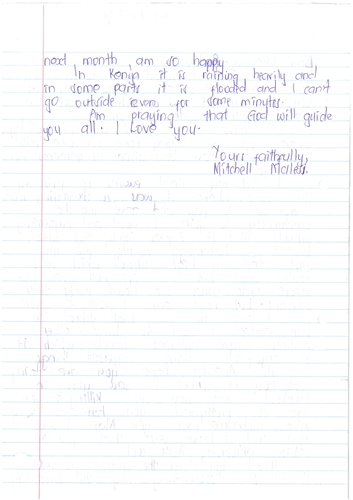 next month, am so happy
In Kenya it is raining heavily and
in some parts it is flooded and I can't
go outside even for some minutes.
Am praying that God will guide
you all. I Love you.
Yours faithfully,
Mitchell